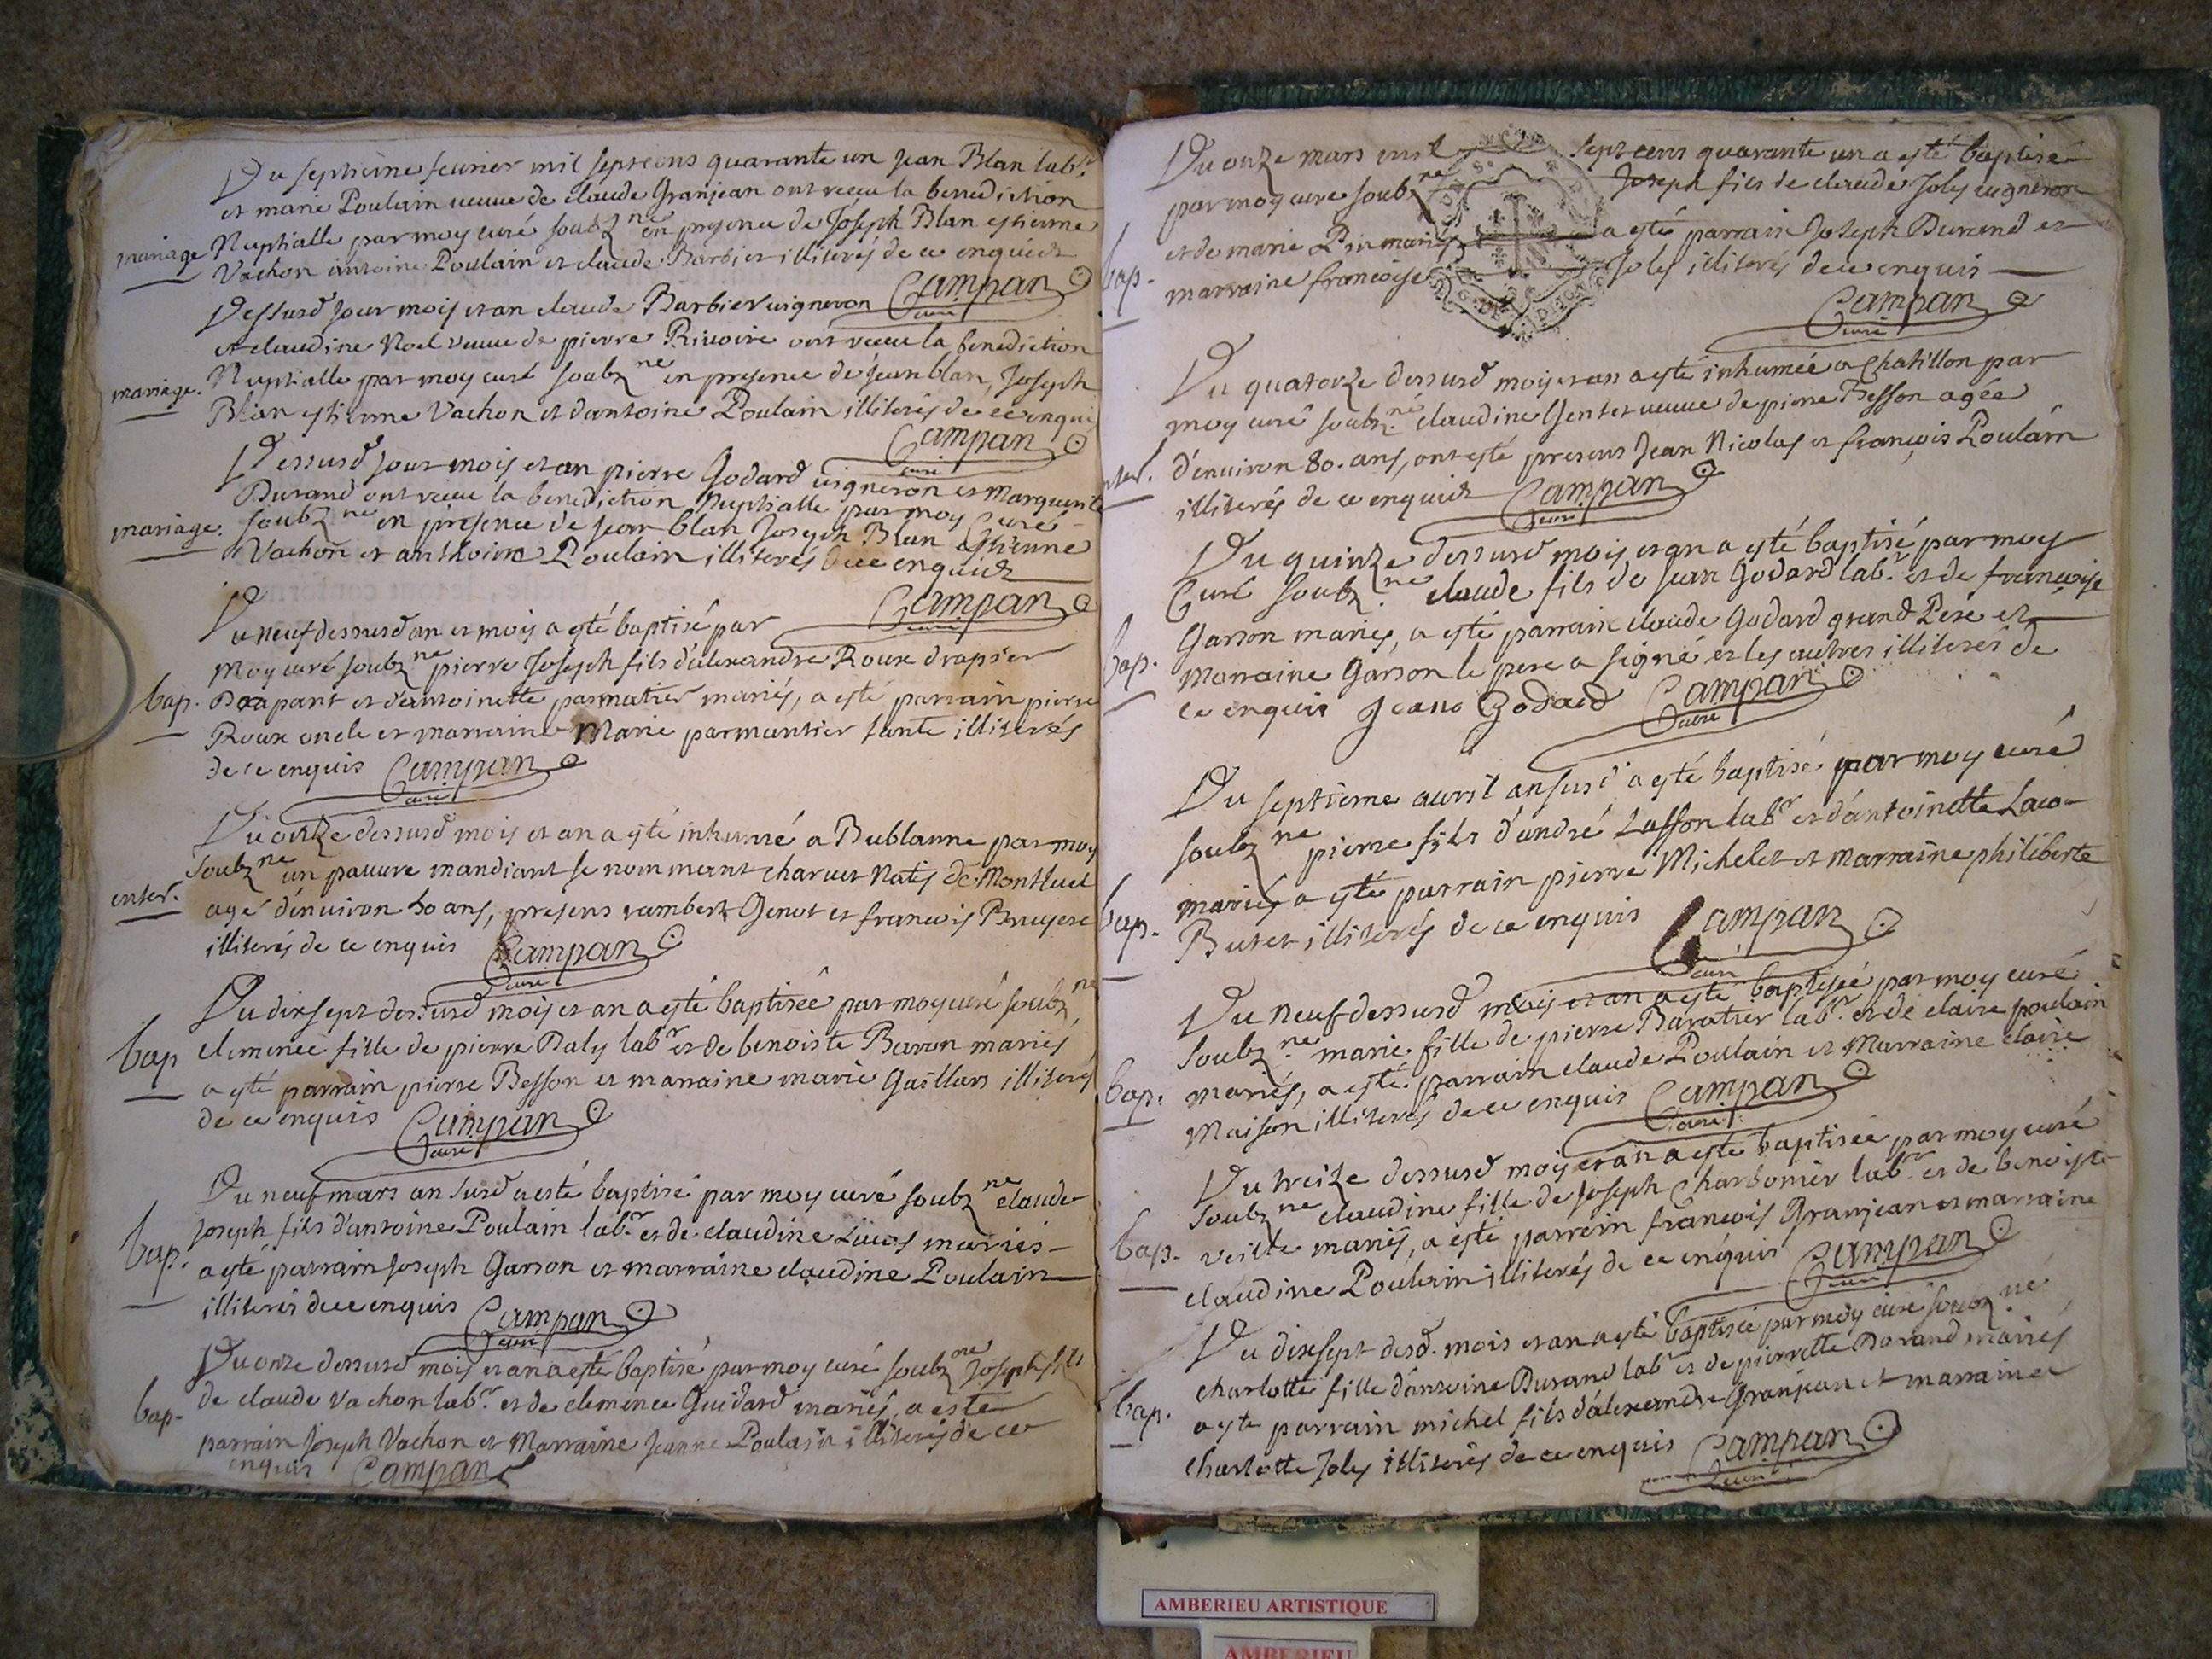 Du septieme feurier mil septcens quarante un Jean Blan labr.
et marie Poulain veuve de claude Granjean ont receu la benediction
mariage Nuptialle par moy curé soubzne en presence de Joseph Blan estienne
Vachon antoine Poulain et claude Barbier illiterés de ce enquiez
Campan
curé
Dessusd jour mois et an claude Barbier vigneron
et claudine Noel veuve de pierre Rivoire ont receu la benediction
mariage. Nuptialle par moy curé soubzne en presence de jean blan, Joseph
Blan estienne Vachon et d'antoine Poulain illiterés de ce enquis
Campan
curé
Dessusd jour mois et an pierre Godard vigneron et Marguerite
Durand ont receu la benediction Nuptialle par moy Curé
mariage. soubzne en presence de jean blan Joseph Blan Estienne
Vachon et anthoine Poulain illiterés de ce enquiez
Campan
curé
Du neuf dessusd an et mois a esté baptisé par
moy curé soubzne pierre Joseph fils d'alexandre Roux drapier
bap. Drapant et d'antoinette parmatier mariés, a esté parrain pierre
Roux oncle et marraine Marie parmantier tante illiterés
de ce enquis Campan
curé
Du onze dessusd mois et an a esté inhumé a Bublanne par moy
soubzne un pauvre mandiant se nommant charvet Natif de Montluel
enter. agé d'environ 50 ans, presens rambert Genot et francois Bruyere
illiterés de ce enquis Campan
curé
Du dix sept dessusd mois et an a esté baptisée par moy curé soubzne
bap clemence fille de pierre Baly labr et de benoiste Baron mariés
a esté parrain pierre Besson et marraine marie Gaillars illiterés
de ce enquis Campan
curé
Du neuf mars an susd a esté baptisé par moy curé soubzne claude
bap. joseph fils d'antoine Poulain labr. et de claudine Lucas mariés
a esté parrain Joseph Garson et marraine claudine Poulain
illiterés de ce enquis Campan
curé
Du onze dessusd mois et an a esté baptisé par moy curé soubzne Joseph fils
bap. de claude Vachon labr. et de clemence Guidard mariés, a este
parrain Joseph Vachon et Marraine Jeanne Poulain illiterés de ce
enquis Campan
Du onze mars mil septcens quarante un a esté baptisé
par moy curé soubzne Joseph fils de claude Joly vigneron
bap. et de marie Pin mariés a esté parrain Joseph Durand et
marraine francoise Joly illiterés de ce enquis
Campan
curé
Du quatorze dessusd mois et an a esté inhumée a Chatillon par
moy curé soubzné claudine Gentet veuve de pierre Besson agée
enter. d'environ 80. ans, ont esté presens Jean Nicolas et françois Poulain
illiterés de ce enquiez Campan
curé
Du quinze dessusd mois et an a esté baptisé par moy
Curé soubzne. claude fils de Jean Godard labr. et de françoise
bap. Garson mariés, a esté parrain claude Godard grand Pere et
Marraine Garson le pere a signé et les autres illiterés de
ce enquis Jeans Godard Campan
curé
Du septieme auril an susd a esté baptisé par moy curé
soubzne pierre fils d'andré Lasson labr et d'antoinette Laco-
bap. mariés a esté parrain pierre Michelet et marraine philiberte
Butet illiterés de ce enquis Campan
curé
Du neuf dessusd mois et an a esté baptisée par moy curé
soubzne. marie fille de pierre Baratier labr. et de claire poulain
bap. mariés, a esté parrain claude Poulain et Marraine claire
Maison illiterés de ce enquis Campan
curé
Du treize dessusd mois et an a esté baptisée par moy curé
soubzne claudine fille de Joseph Charbonier labr et de benoiste
bap. veille mariés, a esté parrein francois Granjean et marraine
claudine Poulain illiterés de ce enquis Campan
curé
Du dix sept desd. mois et an a esté baptisée par moy curé soubzné
charlotte fille d'antoine Durand labr et de pierrette Durand mariés
bap. a esté parrain michel fils d'alexandre Granjean et marraine
charlotte Joly illiterés de ce enquis Campan
curé
AMBERIEU ARTISTIQUE
AMBERIEU